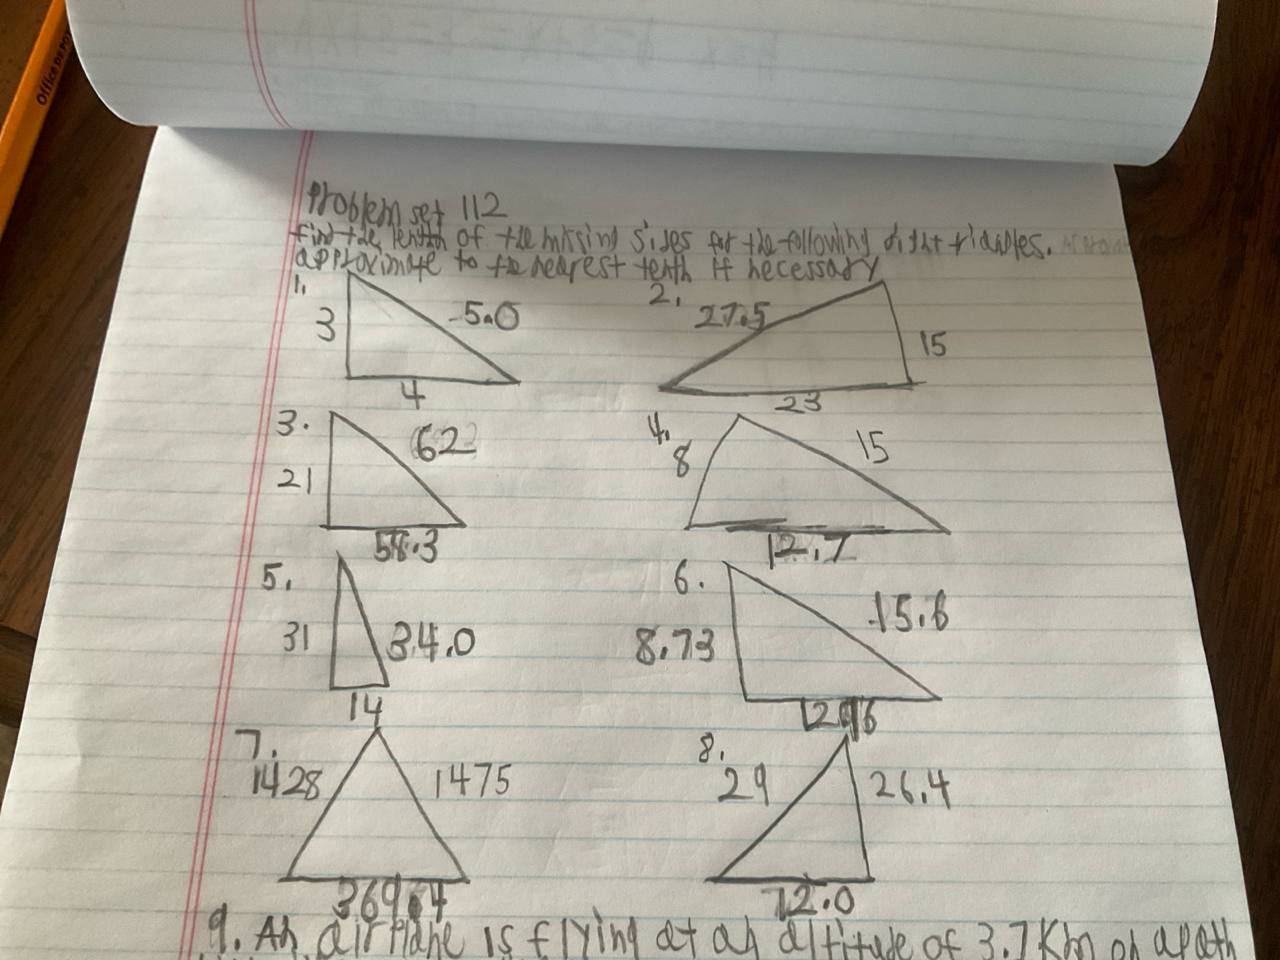 Office DEPOT
Problem set 112
find the length of the missing sides for the following right triangles.
approximate to the nearest tenth if necessary
1.
3
5.0
4
2.
27.5
15
23
3.
21
62
58.3
4.
8
15
12.7
5.
31
34.0
14
6.
8.73
15.6
7.
1428
1475
369.4
8.
29
26.4
12.0
9. An airplane is flying at an altitude of 3.7 Km on a path